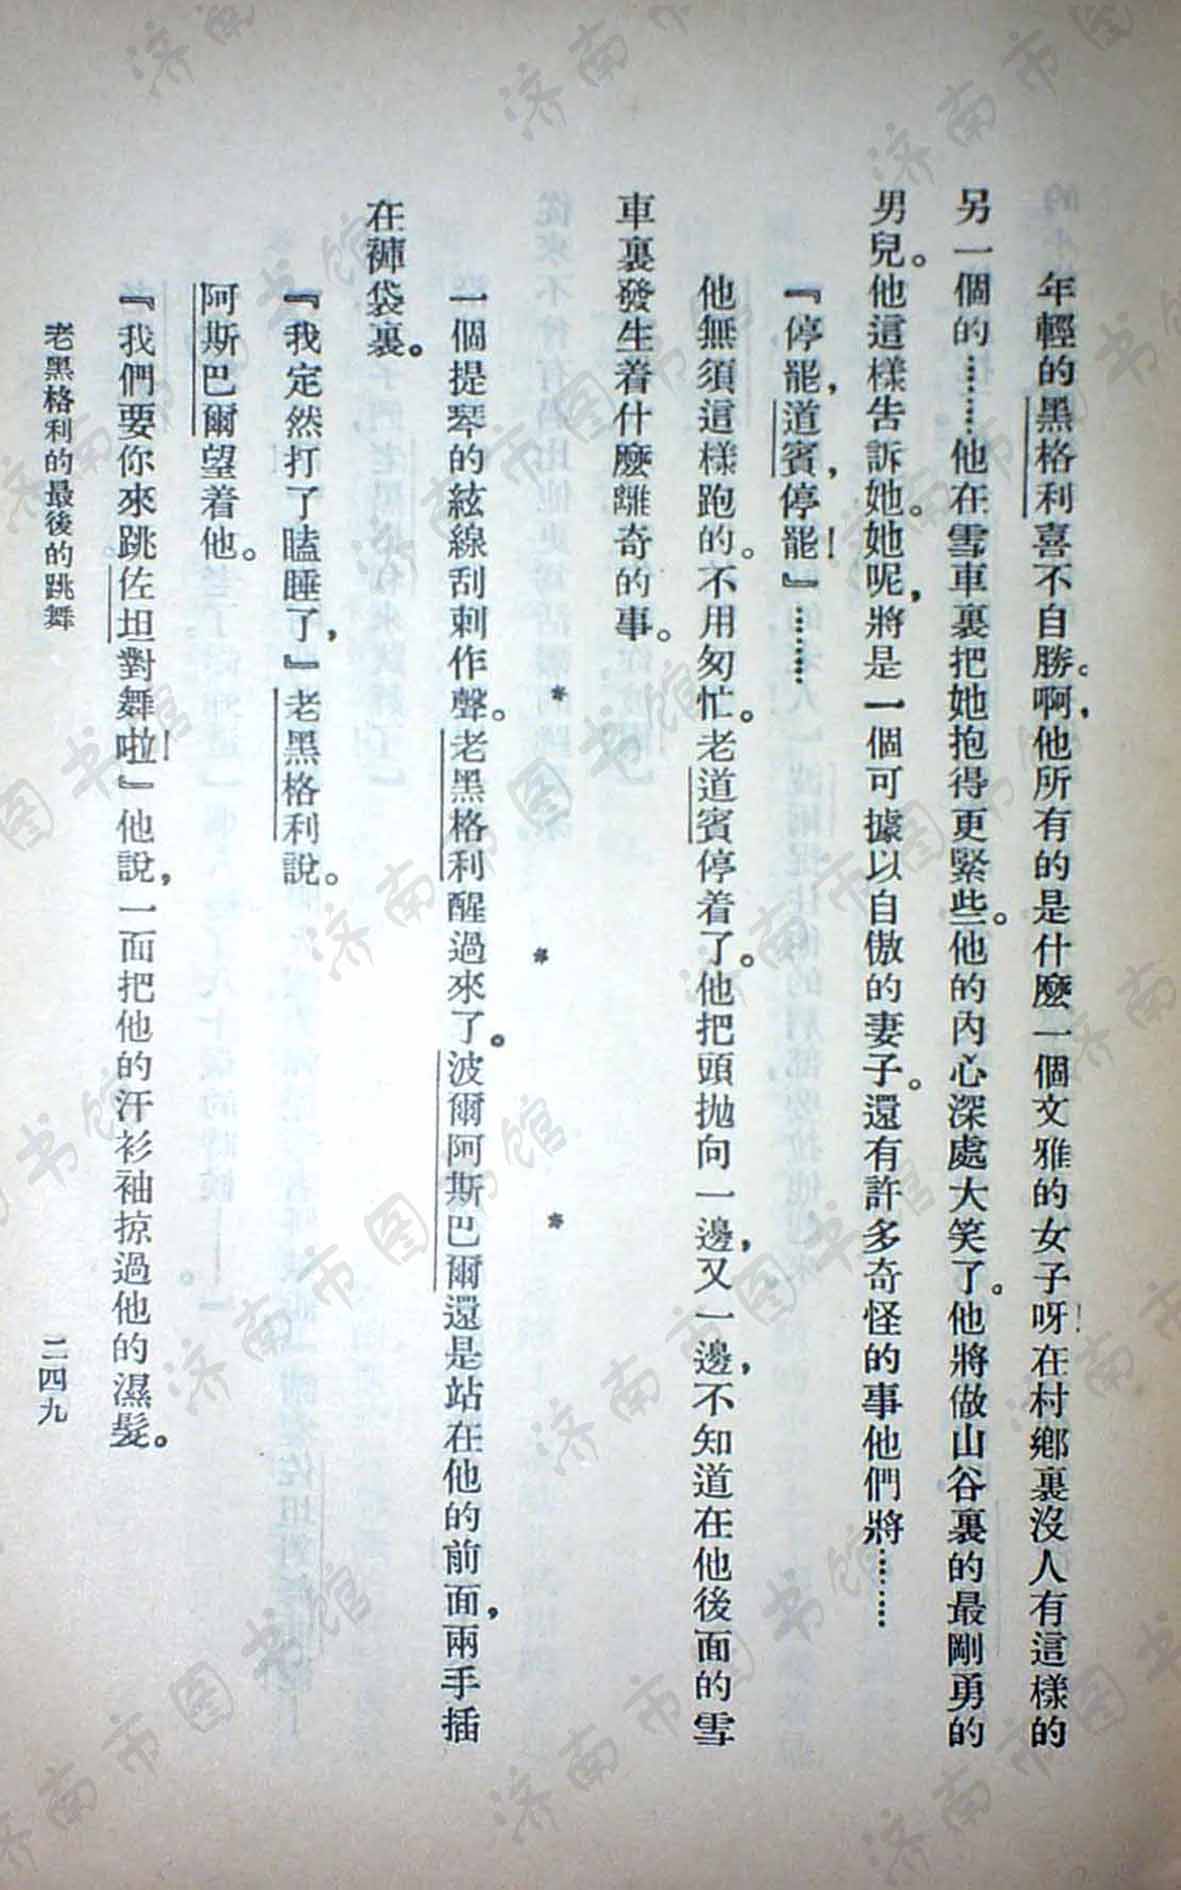 年輕的黑格利喜不自勝。啊，他所有的是什麼一個文雅的女子呀！在村鄉裏沒人有這樣的
另一個的………他在雪車裏把她抱得更緊些。他的內心深處大笑了。他將做山谷裏的最剛勇的
男兒。他這樣告訴她。她呢，將是一個可據以自傲的妻子。還有許多奇怪的事他們將………
『停罷，道賓，停罷！』………
他無須這樣跑的。不用匆忙。老道賓停着了。他把頭拋向一邊，又一邊，不知道在他後面的雪
車裏發生着什麼離奇的事。
* * *
一個提琴的絃線刮刺作聲。老黑格利醒過來了。波爾阿斯巴爾還是站在他的前面，兩手插
在褲袋裏。
『我定然打了瞌睡了，』老黑格利說。
阿斯巴爾望着他。
『我們要你來跳佐坦對舞啦！』他說，一面把他的汗衫袖掠過他的濕髮。
老黑格利的最後的跳舞
二四九
济南市图书馆